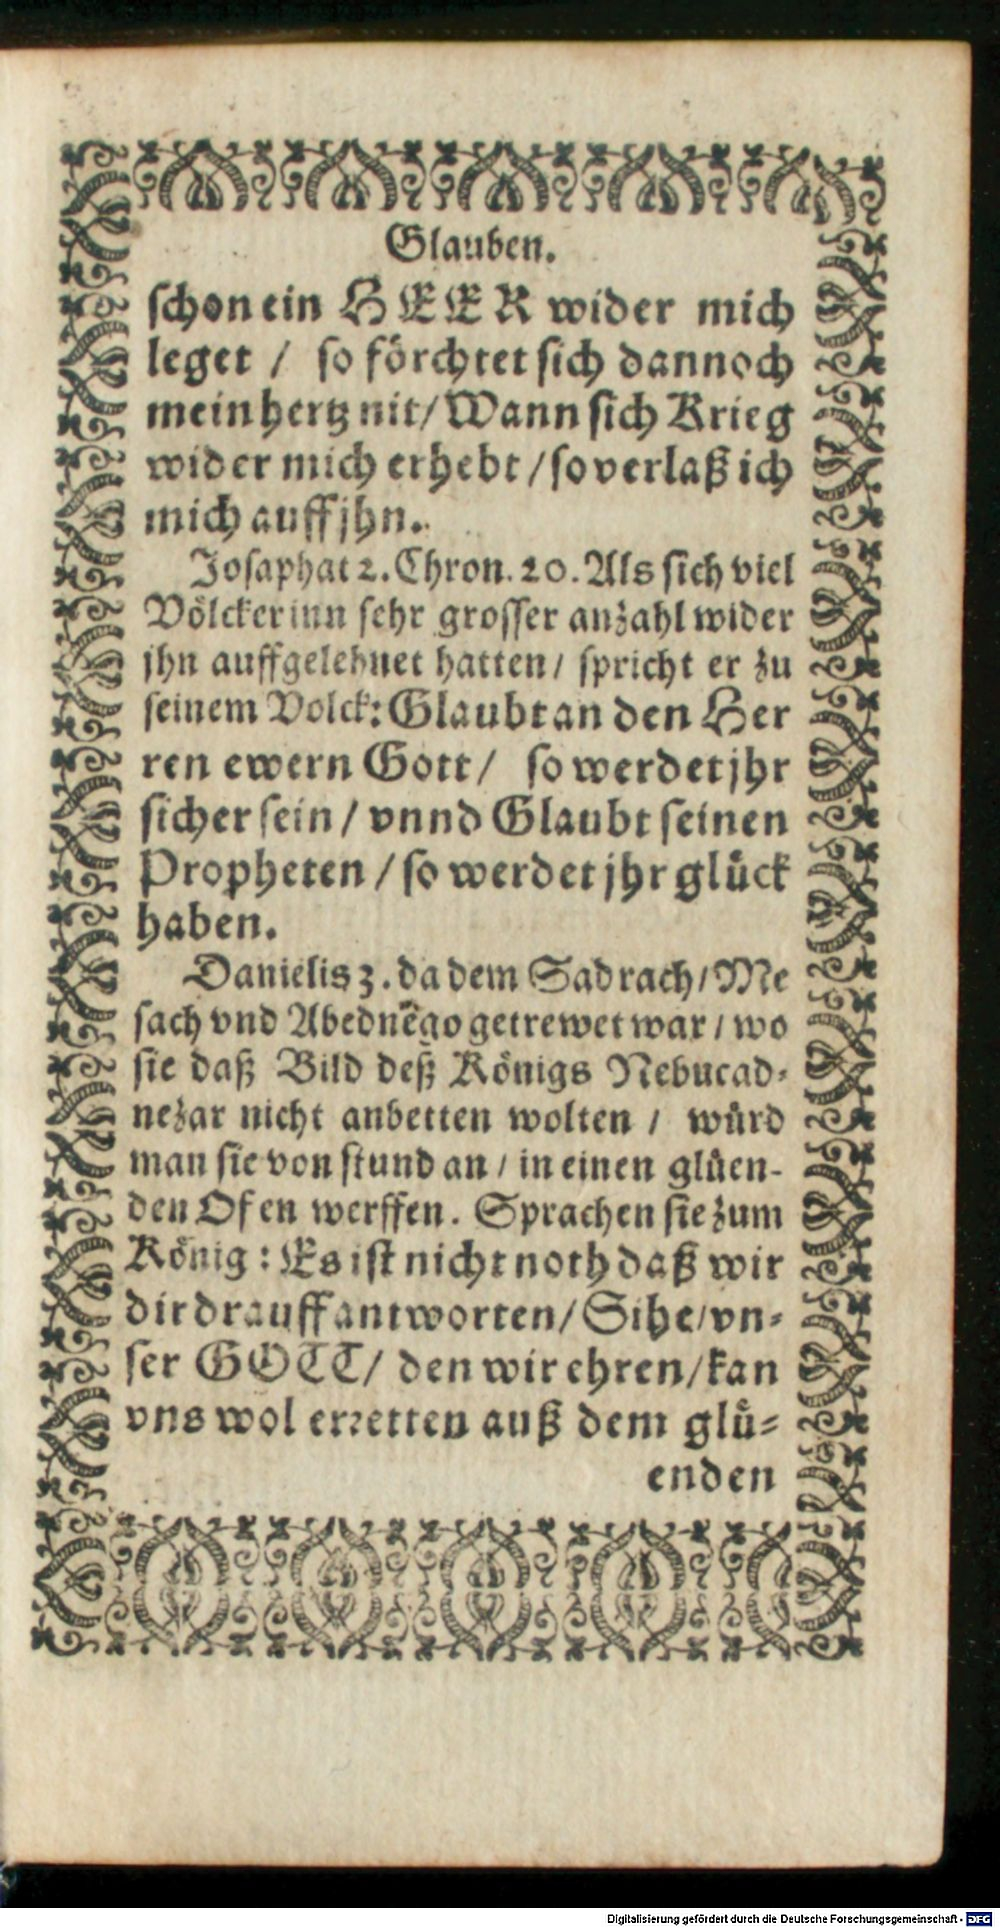 Glauben.
schon ein HEER wider mich
leget / so förchtet sich dannoch
mein hertz nit / Wann sich Krieg
wider mich erhebt / so verlaß ich
mich auff jhn.
Josaphat 2. Chron. 20. Als sich viel
Völcker inn sehr grosser anzahl wider
jhn auffgelehnet hatten / spricht er zu
seinem Volck: Glaubt an den Her
ren ewern Gott / so werdet jhr
sicher sein / vnnd Glaubt seinen
Propheten / so werdet jhr glück
haben.
Danielis 3. da dem Sadrach / Me
sach vnd Abednego getrewet war / wo
sie daß Bild deß Königs Nebucad-
nezar nicht anbetten wolten / würd
man sie von stund an / in einen glüen-
den Ofen werffen. Sprachen sie zum
König: Es ist nicht noth daß wir
dir drauff antworten / Sihe / vn-
ser GOTT / den wir ehren / kan
vns wol erretten auß dem glü-
enden
Digitalisierung gefördert durch die Deutsche Forschungsgemeinschaft - DFG